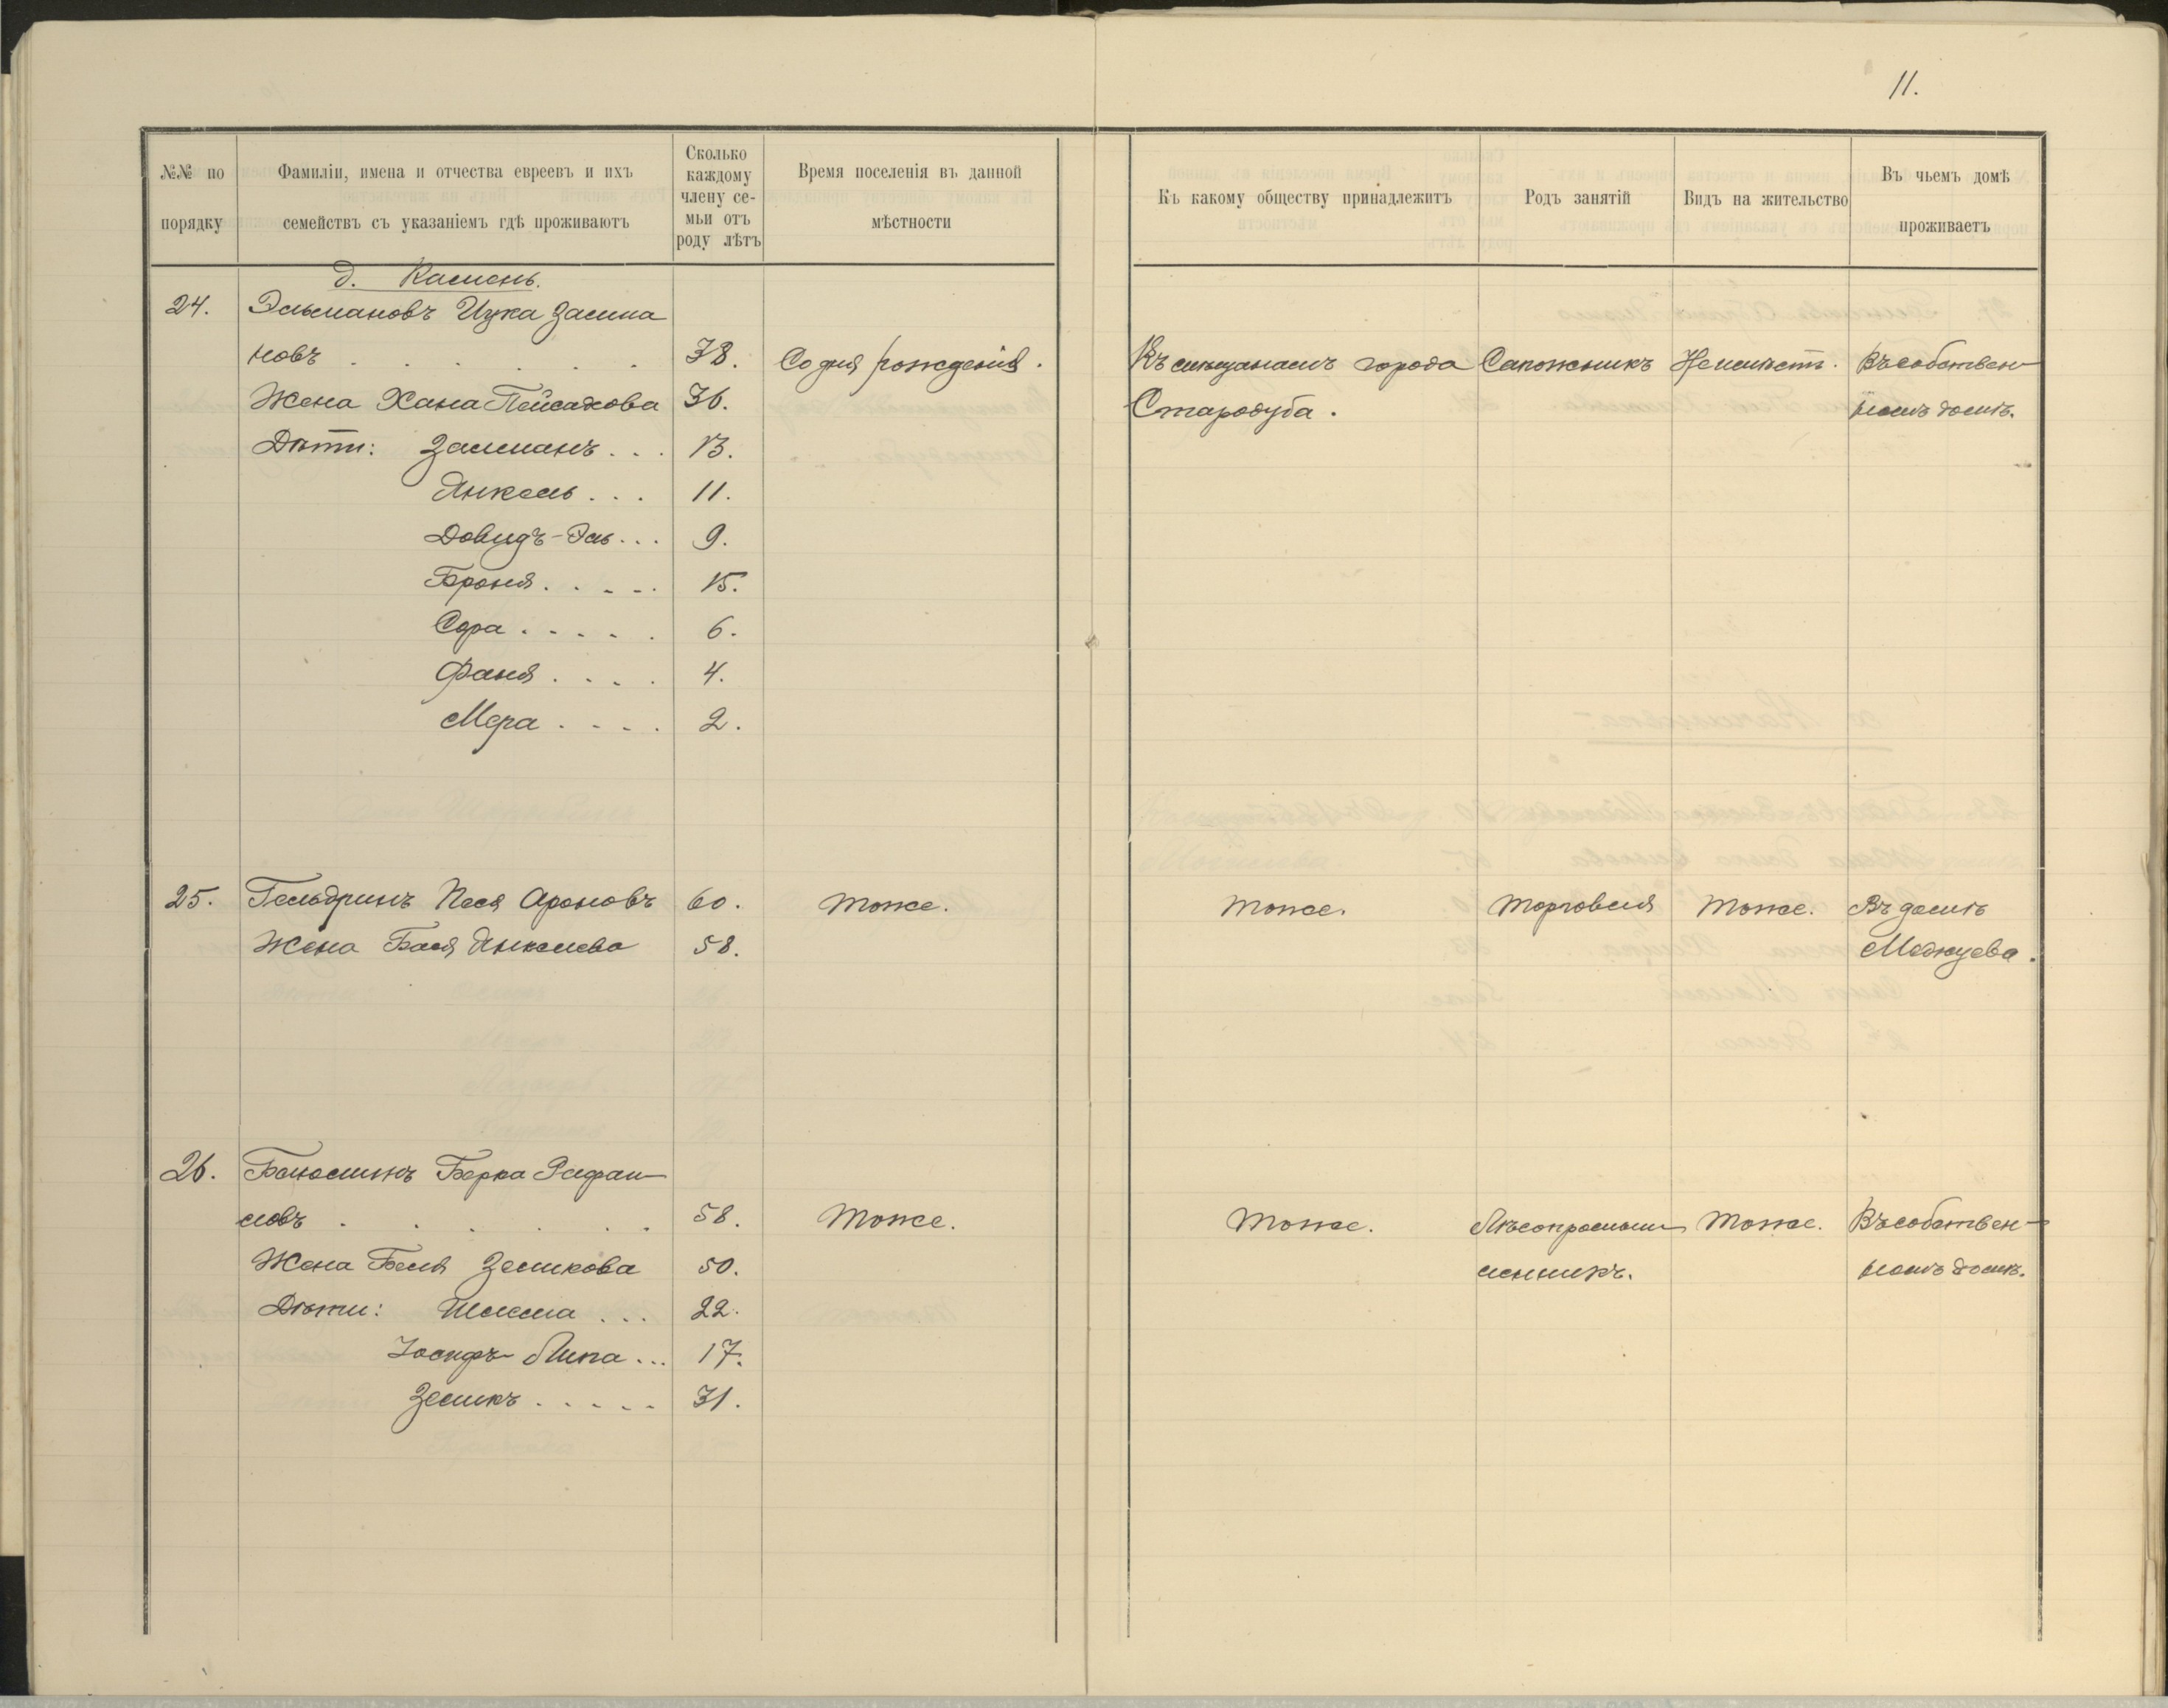 11.
№№ по
порядку
Фамиліи, имена и отчества евреевъ и ихъ
семействъ съ указаніемъ гдѣ проживаютъ
Сколько
каждому
члену се-
мьи отъ
роду лѣтъ
Время поселенія въ данной
мѣстности
Къ какому обществу принадлежитъ
Родъ занятій
Видъ на жительство
Въ чьемъ домѣ
проживаетъ
д. Камень.
24. Эльмановъ Ицка Залма
новъ . . . . . . 38. Со дня рожденія. Къ мѣщанамъ города Сапожникъ Неимѣетъ. Въ собствен
Жена Хана Пейсахова 36. Стародуба. номъ домѣ.
Дѣти: Залманъ . . . 13.
Янкель . . . 11.
Довидъ-Эль . . . 9.
Броня . . . . . 15.
Сора . . . . . 6.
Фаня . . . . 4.
Мера . . . . 2.
25. Гельдринъ Песя Ароновъ 60. Тоже. Тоже. Торговля Тоже. Въ домѣ
Жена Бася Янкелева 58.
26. Берка Рафаи
ловъ . . . . . . 58. Тоже. Тоже. Лѣсопромыш Тоже. Въ собствен-
Жена Беля Зеликова 50. ленникъ. номъ домѣ.
Дѣти: Шлема . . . 22.
Іосифъ-Липа . . . 17.
Зеликъ . . . . . 31.